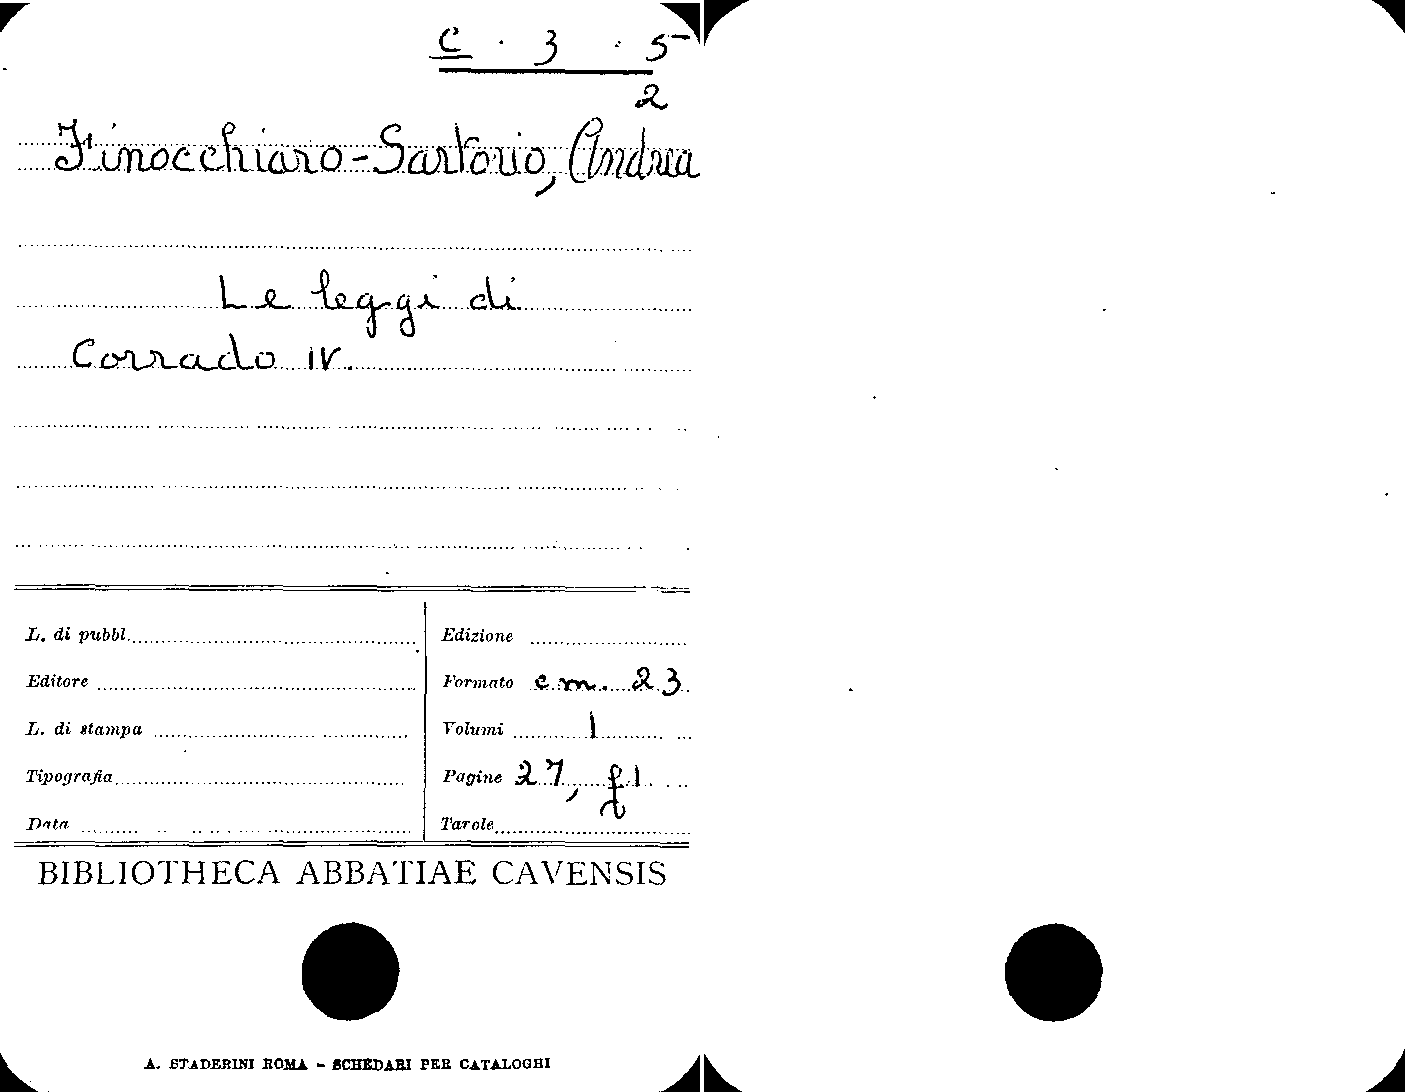 C · 3 · 5
2
Finocchiaro-Sartorio, Andrea
Le leggi di
Corrado IV.
L. di pubbl.
Edizione
Editore
Formato cm. 23
L. di stampa
Volumi 1
Tipografia
Pagine 27, f 1
Data
Tavole
BIBLIOTHECA ABBATIAE CAVENSIS
A. STADERINI ROMA - SCHEDARI PER CATALOGHI